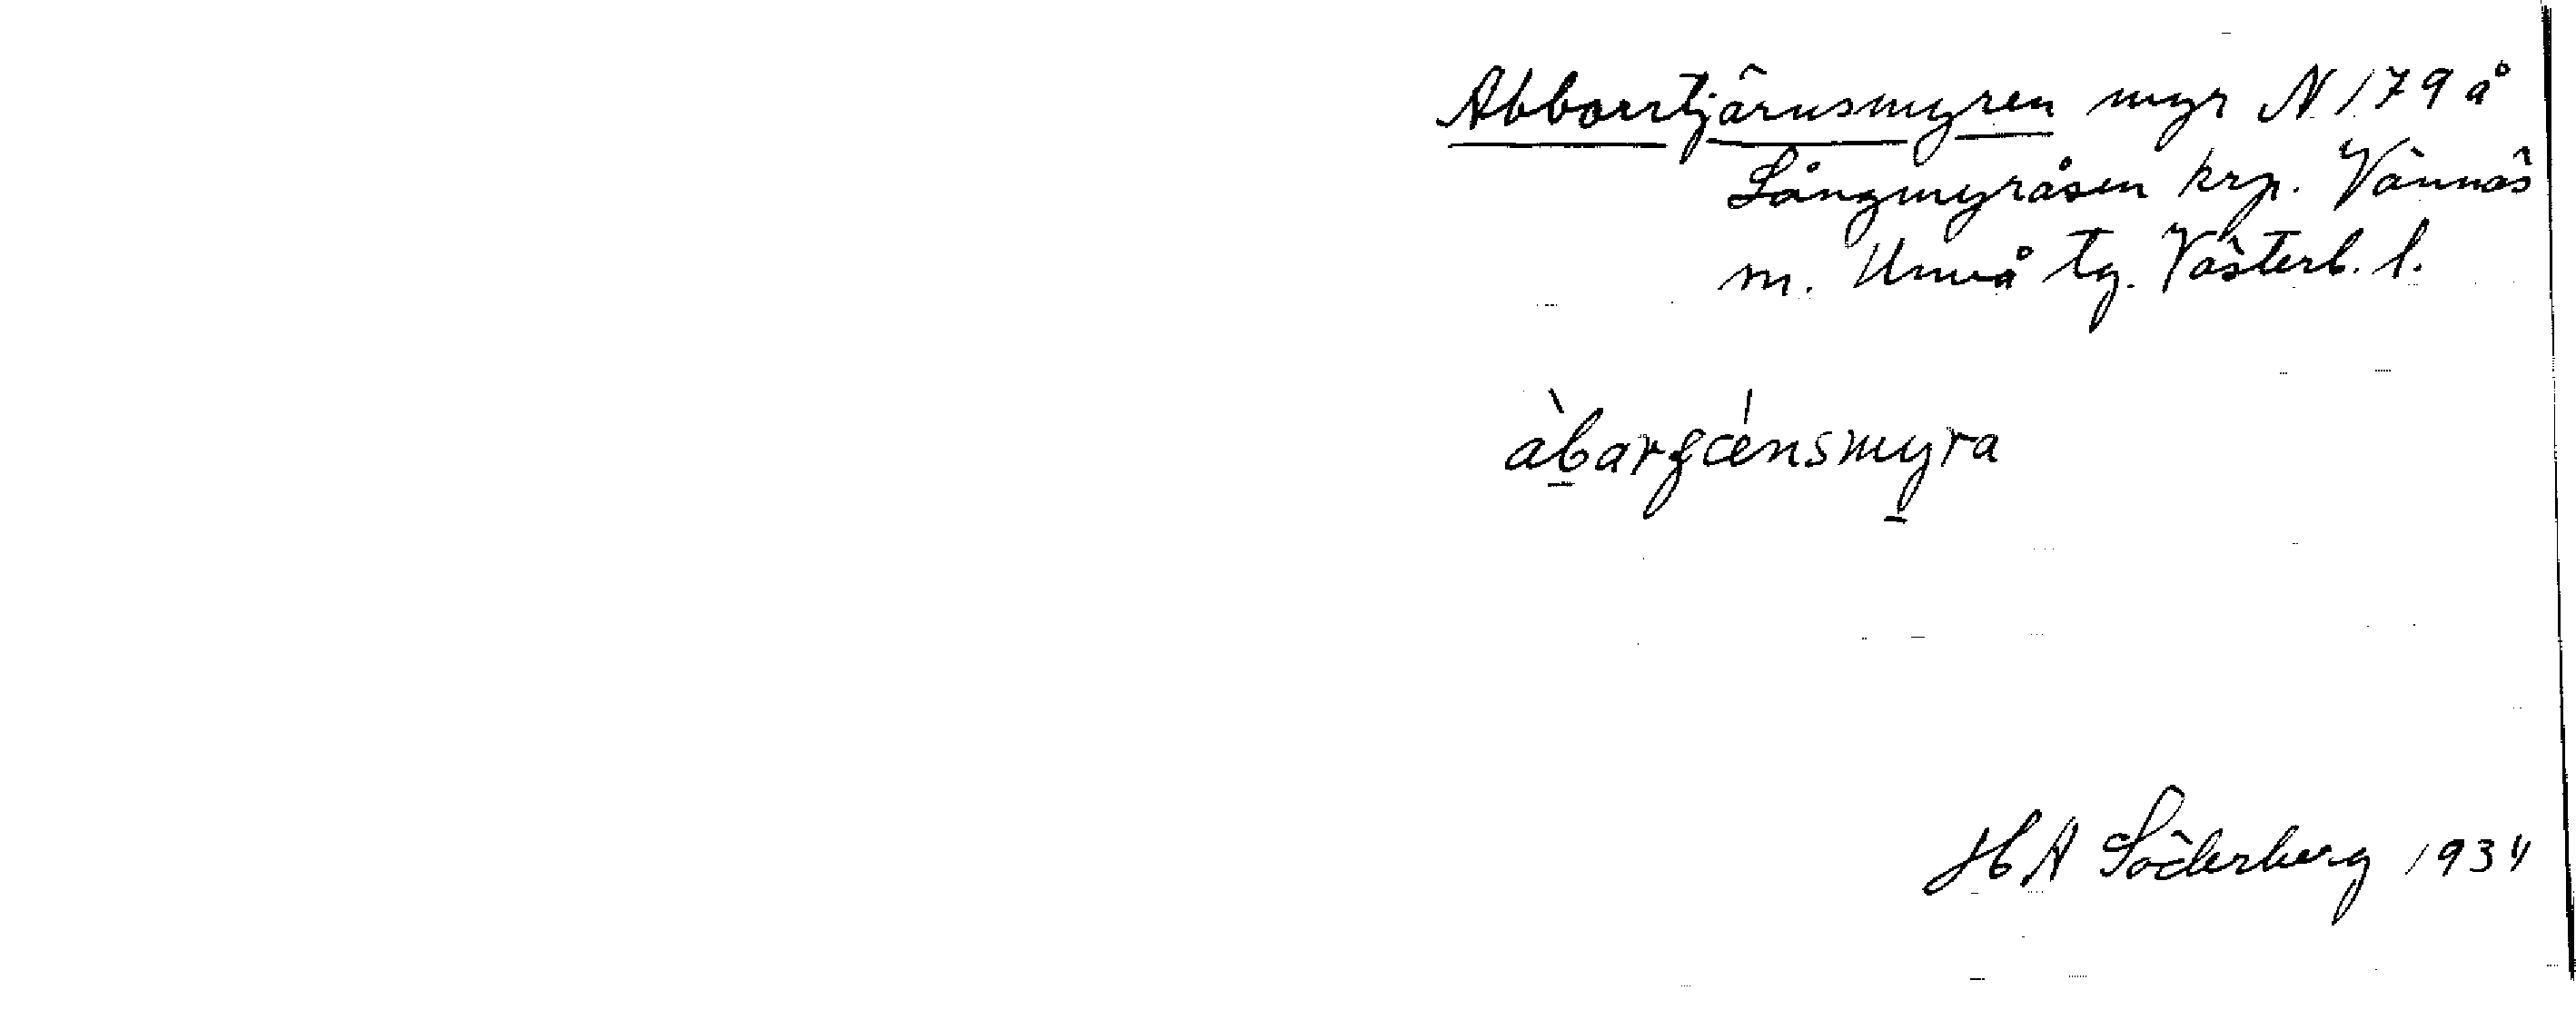 Abborrtjärnsmyren myr N 179 å
Långmyråsen krp. Vännäs
m. Umeå tg. Västerb. l.
àbarʂcénsmyra
H A Söderberg 1934